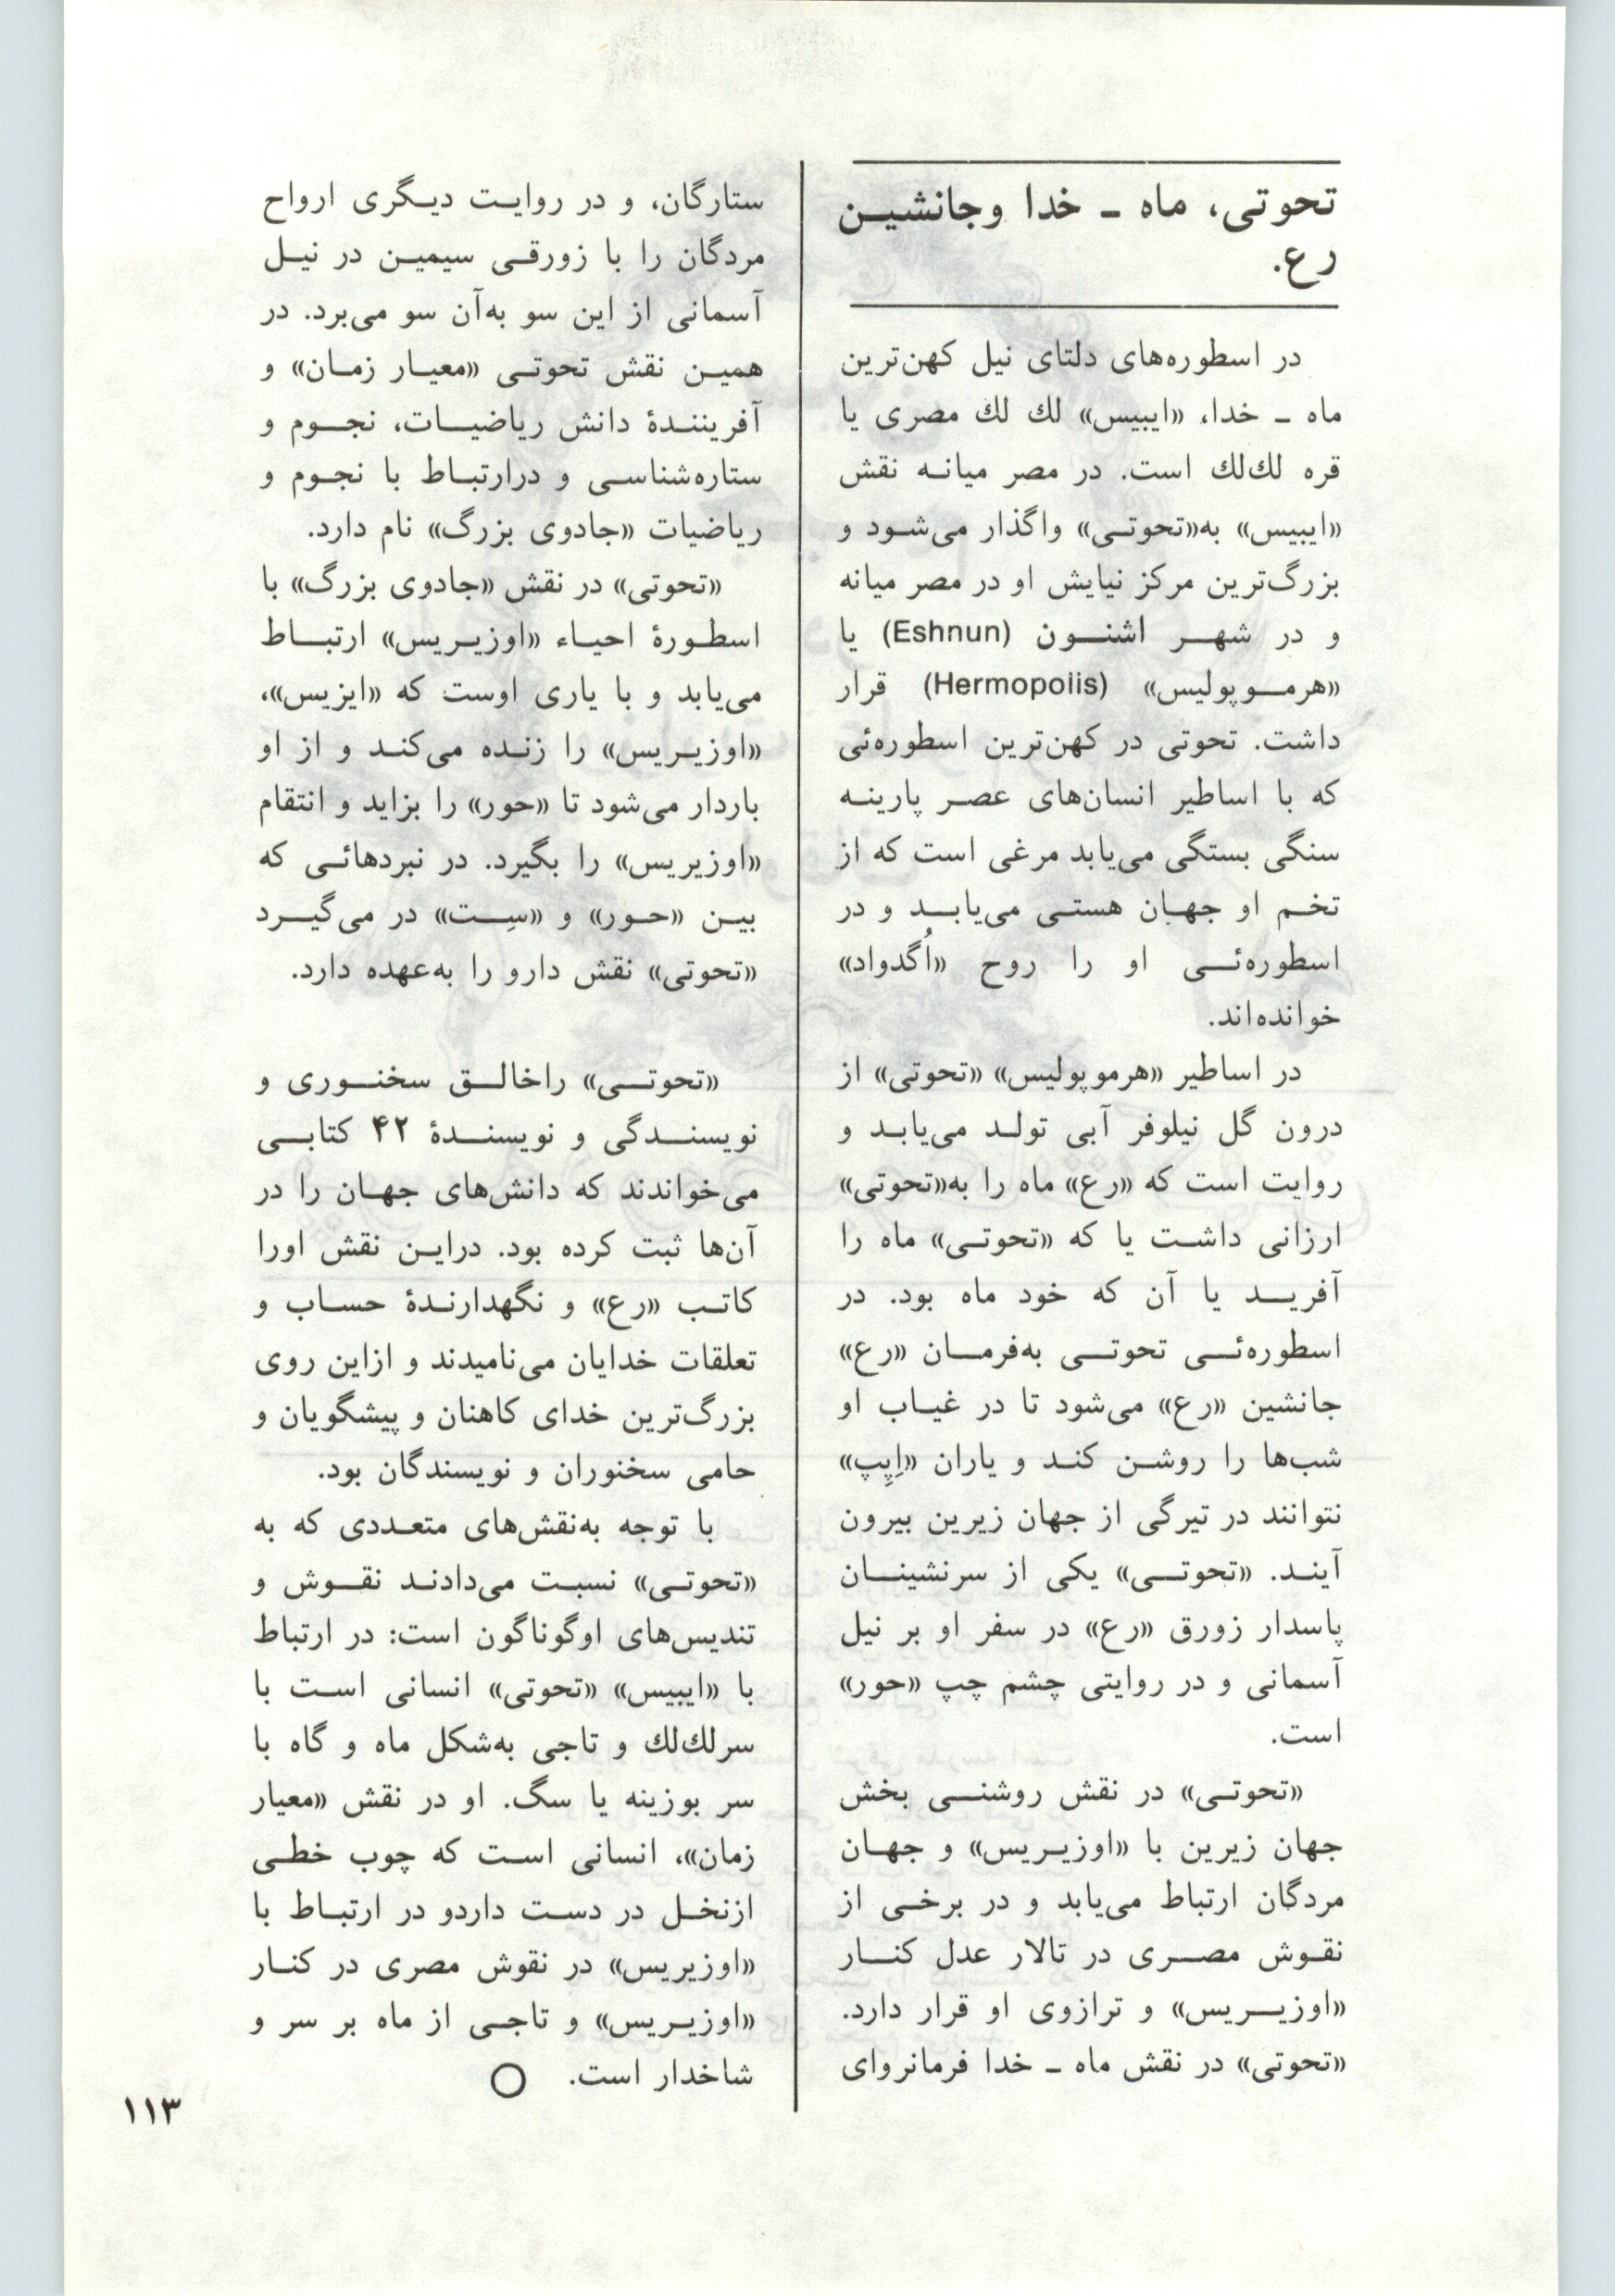 تحوتی، ماه ـ خدا وجانشین
رع.
در اسطوره‌های دلتای نیل کهن‌ترین
ماه ـ خدا، «ایبیس» لك لك مصری یا
قره لك‌لك است. در مصر میانه نقش
«ایبیس» به«تحوتی» واگذار می‌شود و
بزرگ‌ترین مرکز نیایش او در مصر میانه
و در شهر اشنون (Eshnun) یا
«هرموپولیس» (Hermopolis) قرار
داشت. تحوتی در کهن‌ترین اسطوره‌ئی
که با اساطیر انسان‌های عصر پارینه
سنگی بستگی می‌یابد مرغی است که از
تخم او جهان هستی می‌یابد و در
اسطوره‌ئی او را روح «اُگدواد»
خوانده‌اند.
در اساطیر «هرموپولیس» «تحوتی» از
درون گل نیلوفر آبی تولد می‌یابد و
روایت است که «رع» ماه را به«تحوتی»
ارزانی داشت یا که «تحوتی» ماه را
آفرید یا آن که خود ماه بود. در
اسطوره‌ئی تحوتی به‌فرمان «رع»
جانشین «رع» می‌شود تا در غیاب او
شب‌ها را روشن کند و یاران «اِپِپ»
نتوانند در تیرگی از جهان زیرین بیرون
آیند. «تحوتی» یکی از سرنشینان
پاسدار زورق «رع» در سفر او بر نیل
آسمانی و در روایتی چشم چپ «حور»
است.
«تحوتی» در نقش روشنی بخش
جهان زیرین با «اوزیریس» و جهان
مردگان ارتباط می‌یابد و در برخی از
نقوش مصری در تالار عدل کنار
«اوزیریس» و ترازوی او قرار دارد.
«تحوتی» در نقش ماه ـ خدا فرمانروای
ستارگان، و در روایت دیگری ارواح
مردگان را با زورقی سیمین در نیل
آسمانی از این سو به‌آن سو می‌برد. در
همین نقش تحوتی «معیار زمان» و
آفرینندهٔ دانش ریاضیات، نجوم و
ستاره‌شناسی و درارتباط با نجوم و
ریاضیات «جادوی بزرگ» نام دارد.
«تحوتی» در نقش «جادوی بزرگ» با
اسطورهٔ احیاء «اوزیریس» ارتباط
می‌یابد و با یاری اوست که «ایزیس»،
«اوزیریس» را زنده می‌کند و از او
باردار می‌شود تا «حور» را بزاید و انتقام
«اوزیریس» را بگیرد. در نبردهائی که
بین «حور» و «سِت» در می‌گیرد
«تحوتی» نقش دارو را به‌عهده دارد.
«تحوتی» راخالق سخنوری و
نویسندگی و نویسندهٔ ۴۲ کتابی
می‌خواندند که دانش‌های جهان را در
آن‌ها ثبت کرده بود. دراین نقش اورا
کاتب «رع» و نگهدارندهٔ حساب و
تعلقات خدایان می‌نامیدند و ازاین روی
بزرگ‌ترین خدای کاهنان و پیشگویان و
حامی سخنوران و نویسندگان بود.
با توجه به‌نقش‌های متعددی که به
«تحوتی» نسبت می‌دادند نقوش و
تندیس‌های اوگوناگون است: در ارتباط
با «ایبیس» «تحوتی» انسانی است با
سرلك‌لك و تاجی به‌شکل ماه و گاه با
سر بوزینه یا سگ. او در نقش «معیار
زمان»، انسانی است که چوب خطی
ازنخل در دست داردو در ارتباط با
«اوزیریس» در نقوش مصری در کنار
«اوزیریس» و تاجی از ماه بر سر و
شاخدار است.
۱۱۳